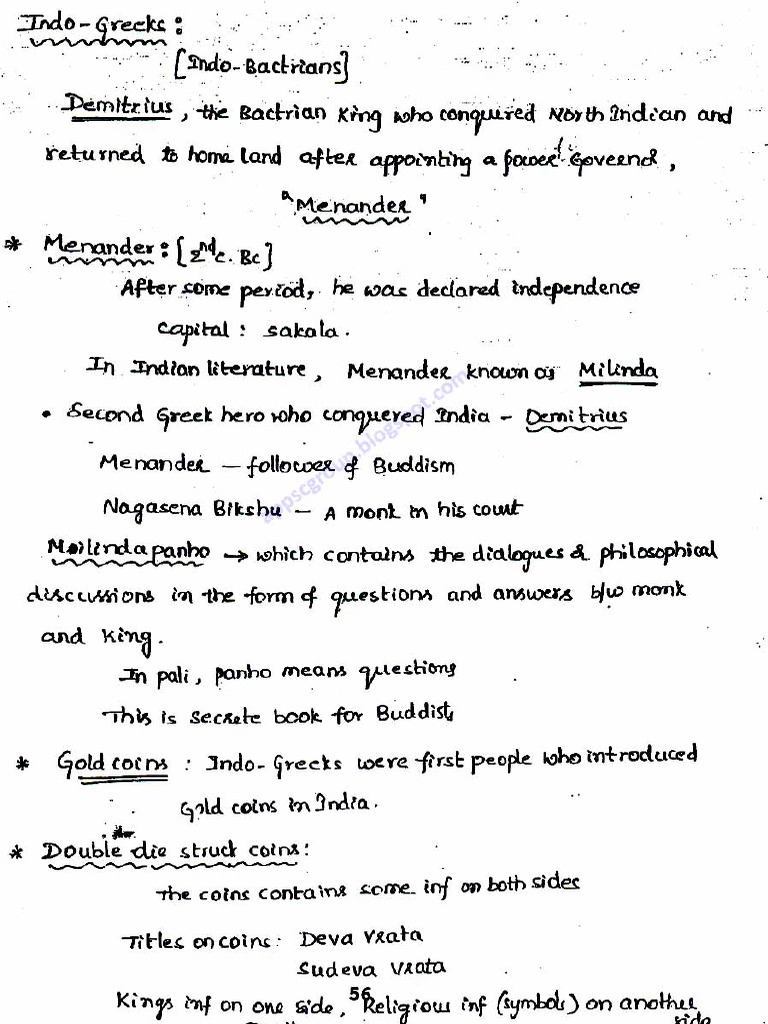 Indo-Greeks:
[Indo-Bactrians]
Demitrius, the Bactrian King who conquered North Indian and
returned to home land after appointing a Governer,
"Menander"
* Menander: [2nd c. BC]
After some period, he was declared independence
capital: sakala.
In Indian literature, Menander known as Milinda
• Second Greek hero who conquered India - Demitrius
Menander - follower of Buddism
Nagasena Bikshu - A monk in his court
Milinda panho → which contains the dialogues & philosophical
discussions in the form of questions and answers b/w monk
and King.
In pali, panho means questions
This is secrete book for Buddists
* Gold coins: Indo-Greeks were first people who introduced
Gold coins in India.
* Double die struck coins:
The coins contains some inf on both sides
Titles on coins: Deva Vrata
Sudeva Vrata
Kings inf on one side, Religious inf (symbols) on another
side
56
appscgroup.blogspot.com